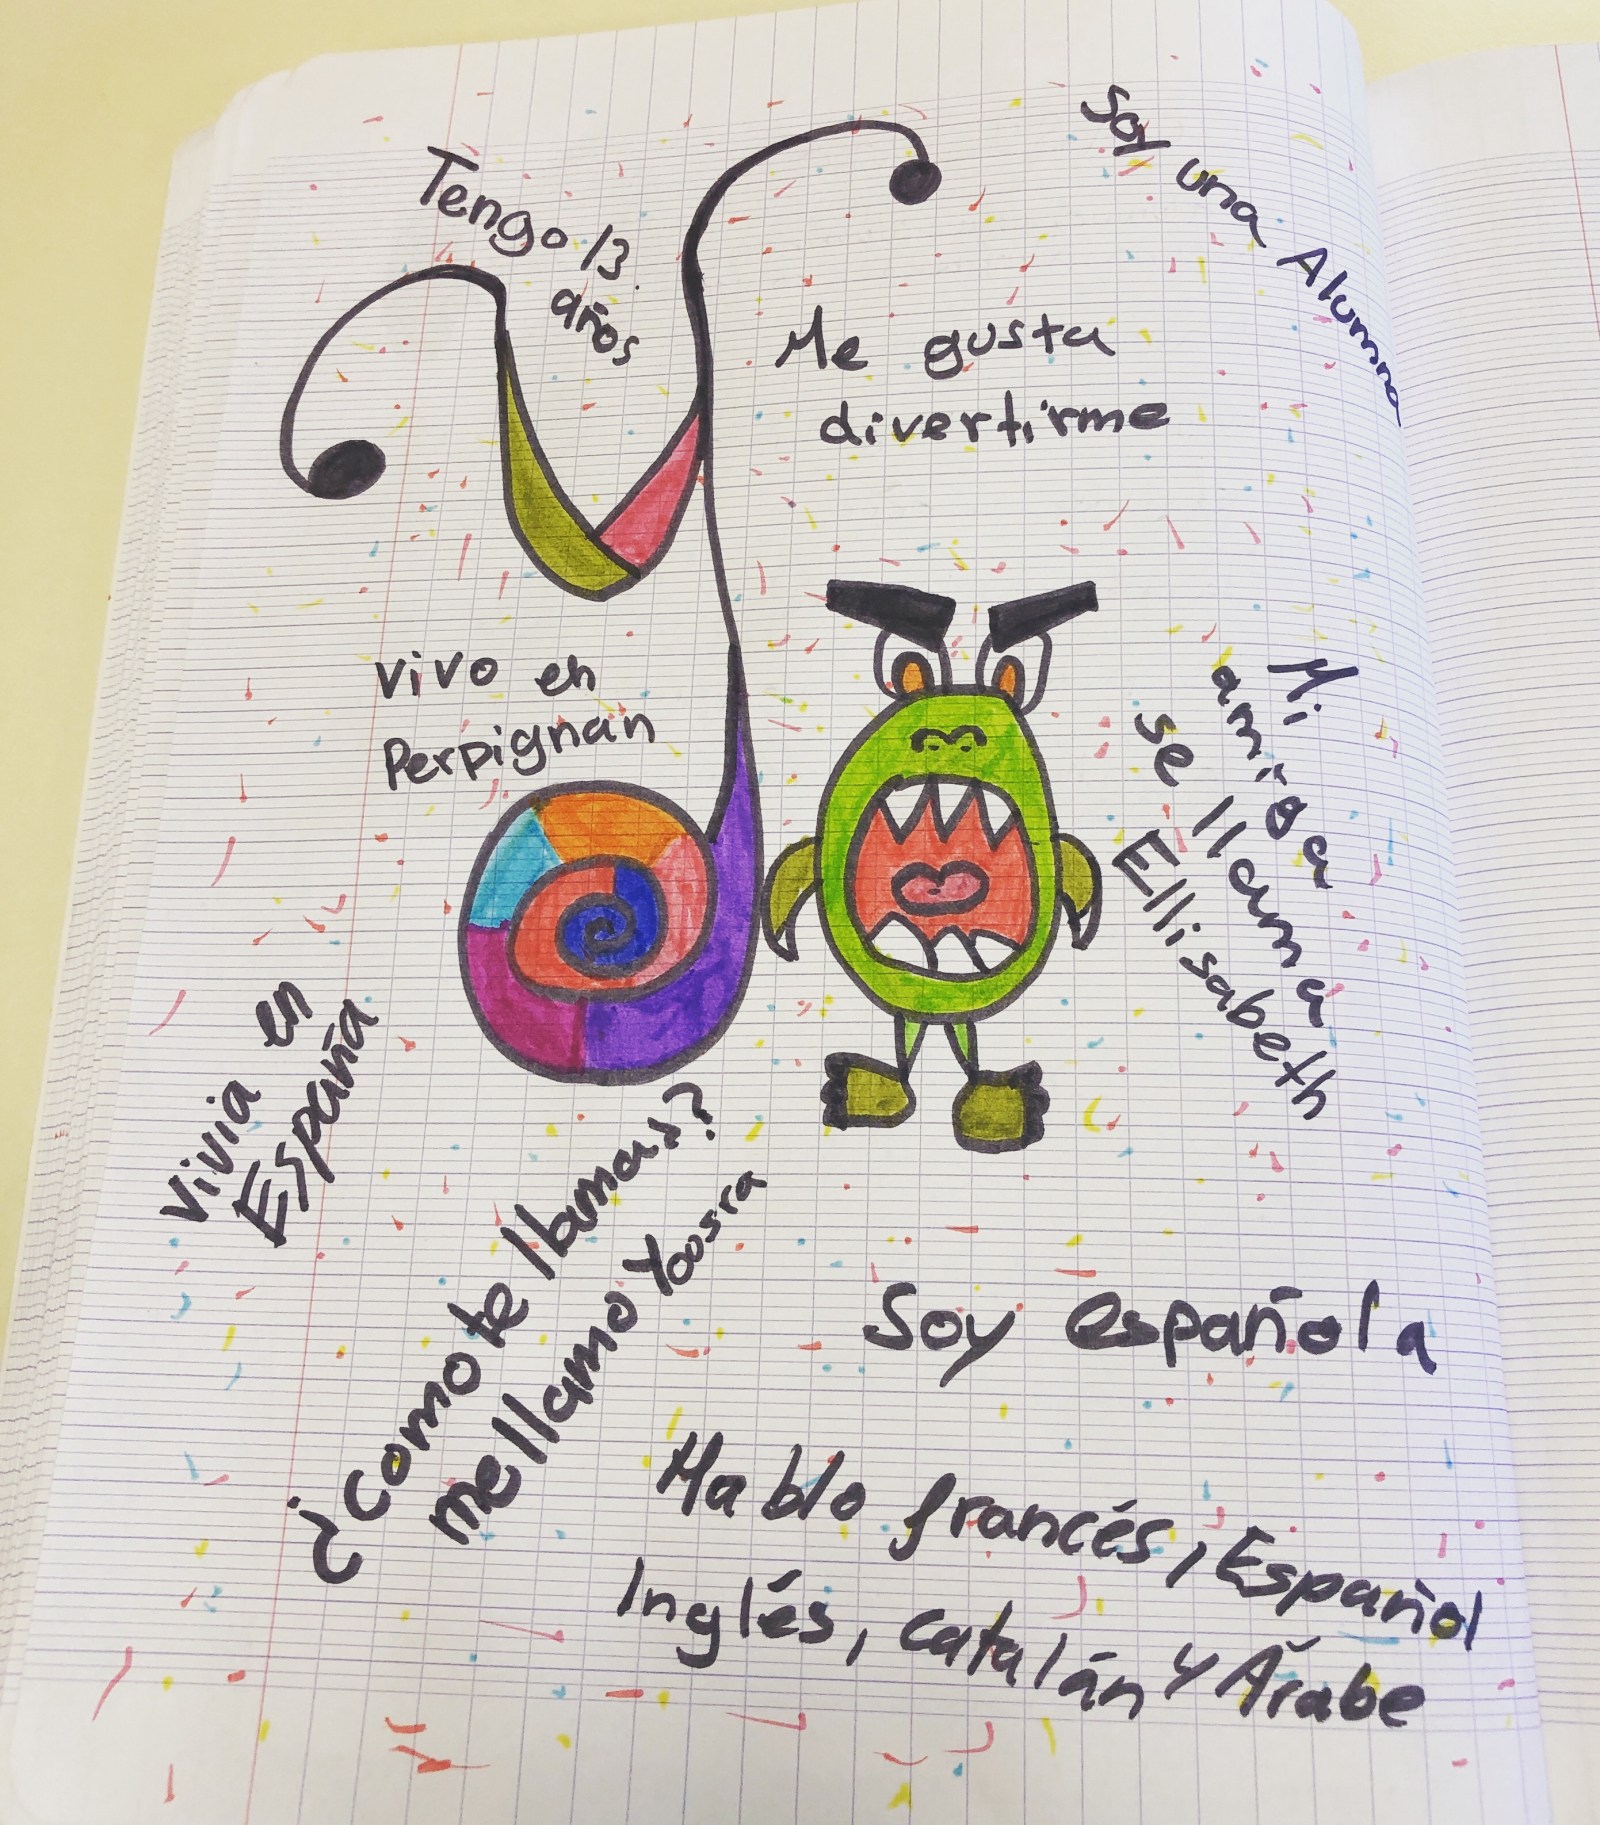 Soy una Alumna
Tengo 13
años
Me gusta
divertirme
vivo en
Perpignan
Mi
amiga
se llama
Ellisabeth
Vivia en
España
¿como te llamas?
me llamo Yousra
Soy española
Hablo francés, Español
Inglés, catalán y Árabe